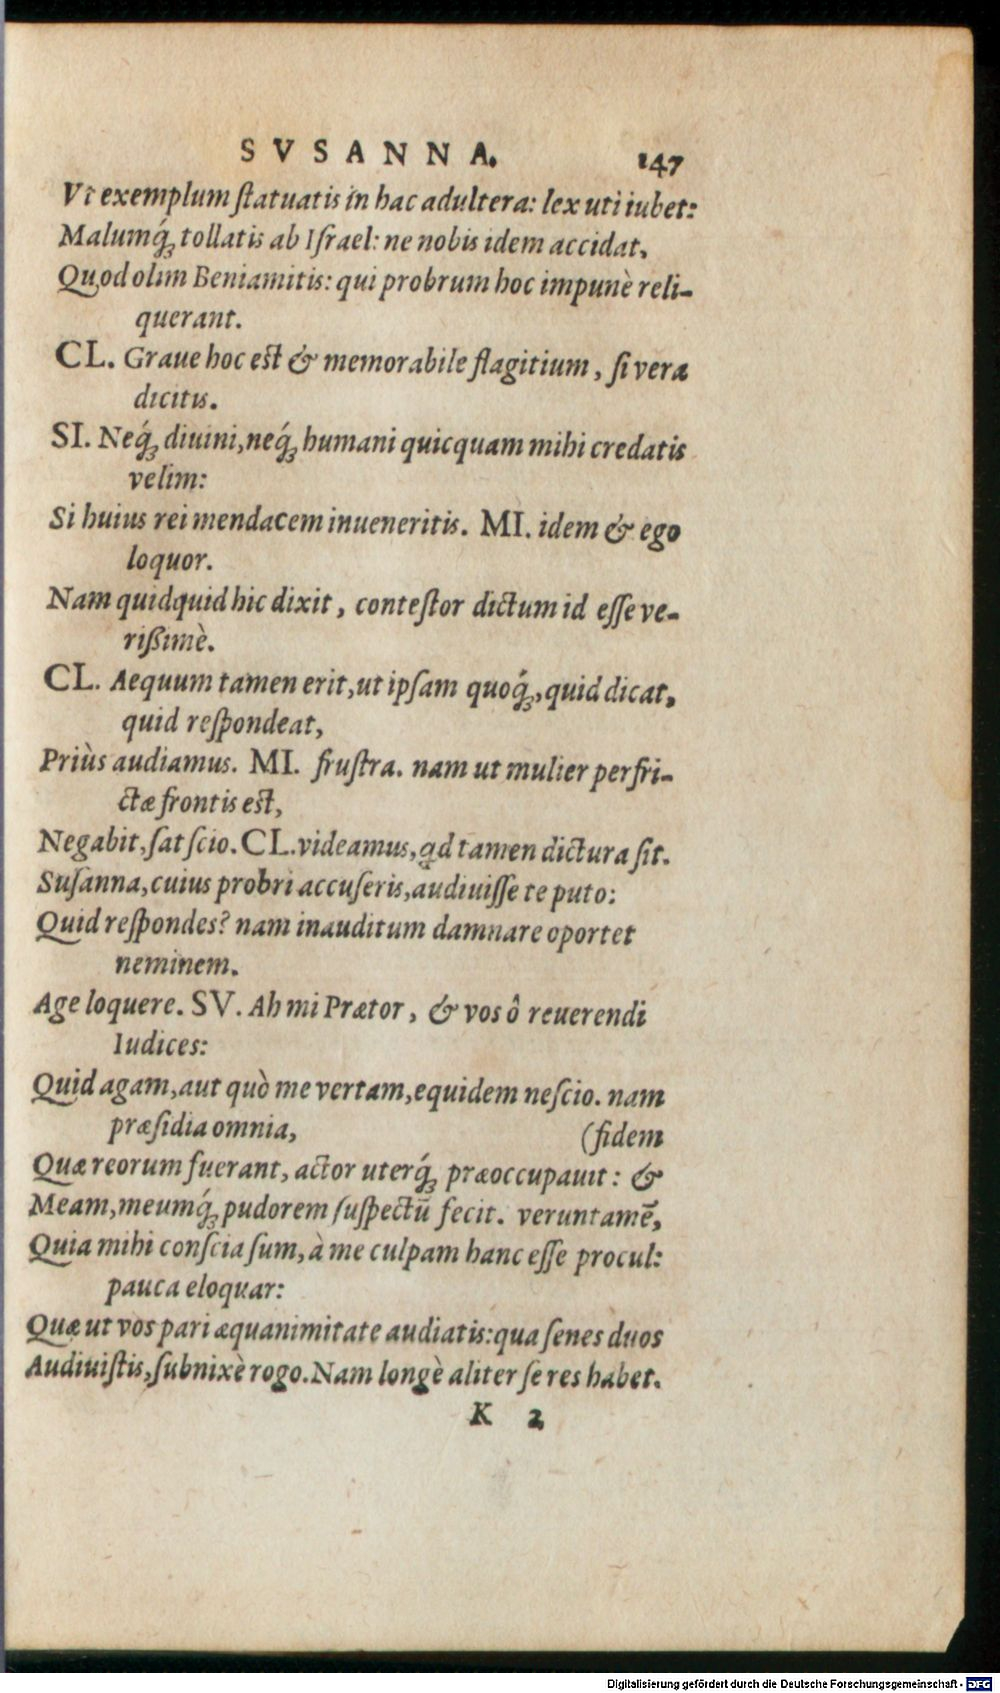 SVSANNA. 147
Vt exemplum ſtatuatis in hac adultera: lex uti iubet:
Malumq́ꝫ tollatis ab Iſrael: ne nobis idem accidat,
Quod olim Beniamitis: qui probrum hoc impunè reli-
querant.
CL. Graue hoc est & memorabile flagitium, ſi vera
dicitis.
SI. Neq́ꝫ diuini, neq́ꝫ humani quicquam mihi credatis
velim:
Si huius rei mendacem inueneritis. MI. idem & ego
loquor.
Nam quidquid hic dixit, conteſtor dictum id eſſe ve-
rißimè.
CL. Aequum tamen erit, ut ipſam quoq́ꝫ, quid dicat,
quid reſpondeat,
Priùs audiamus. MI. fruſtra. nam ut mulier perfri-
ctæ frontis est,
Negabit, ſat ſcio. CL. videamus, qd tamen dictura ſit.
Suſanna, cuius probri accuſeris, audiuiſſe te puto:
Quid reſpondes? nam inauditum damnare oportet
neminem.
Age loquere. SV. Ah mi Prætor, & vos ô reuerendi
Iudices:
Quid agam, aut quò me vertam, equidem neſcio. nam
præſidia omnia, (fidem
Quæ reorum fuerant, actor uterq́ꝫ præoccupauit: &
Meam, meumq́ꝫ pudorem ſuſpectū fecit. veruntamē,
Quia mihi conſcia ſum, à me culpam hanc eſſe procul:
pauca eloquar:
Quæ ut vos pari æquanimitate audiatis: qua ſenes duos
Audiuiſtis, ſubnixè rogo. Nam longè aliter ſe res habet.
K 2
Digitalisierung gefördert durch die Deutsche Forschungsgemeinschaft - DFG